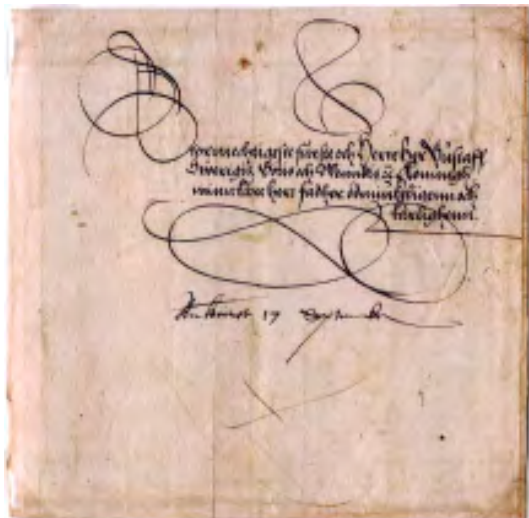 Stormechtigste furste och Herre her Gustaff
Sweriges Götes och Wendes &c Konningh
minn kere herr fadher ödmiukeligenn och
kärlighenn.
17 Septembr